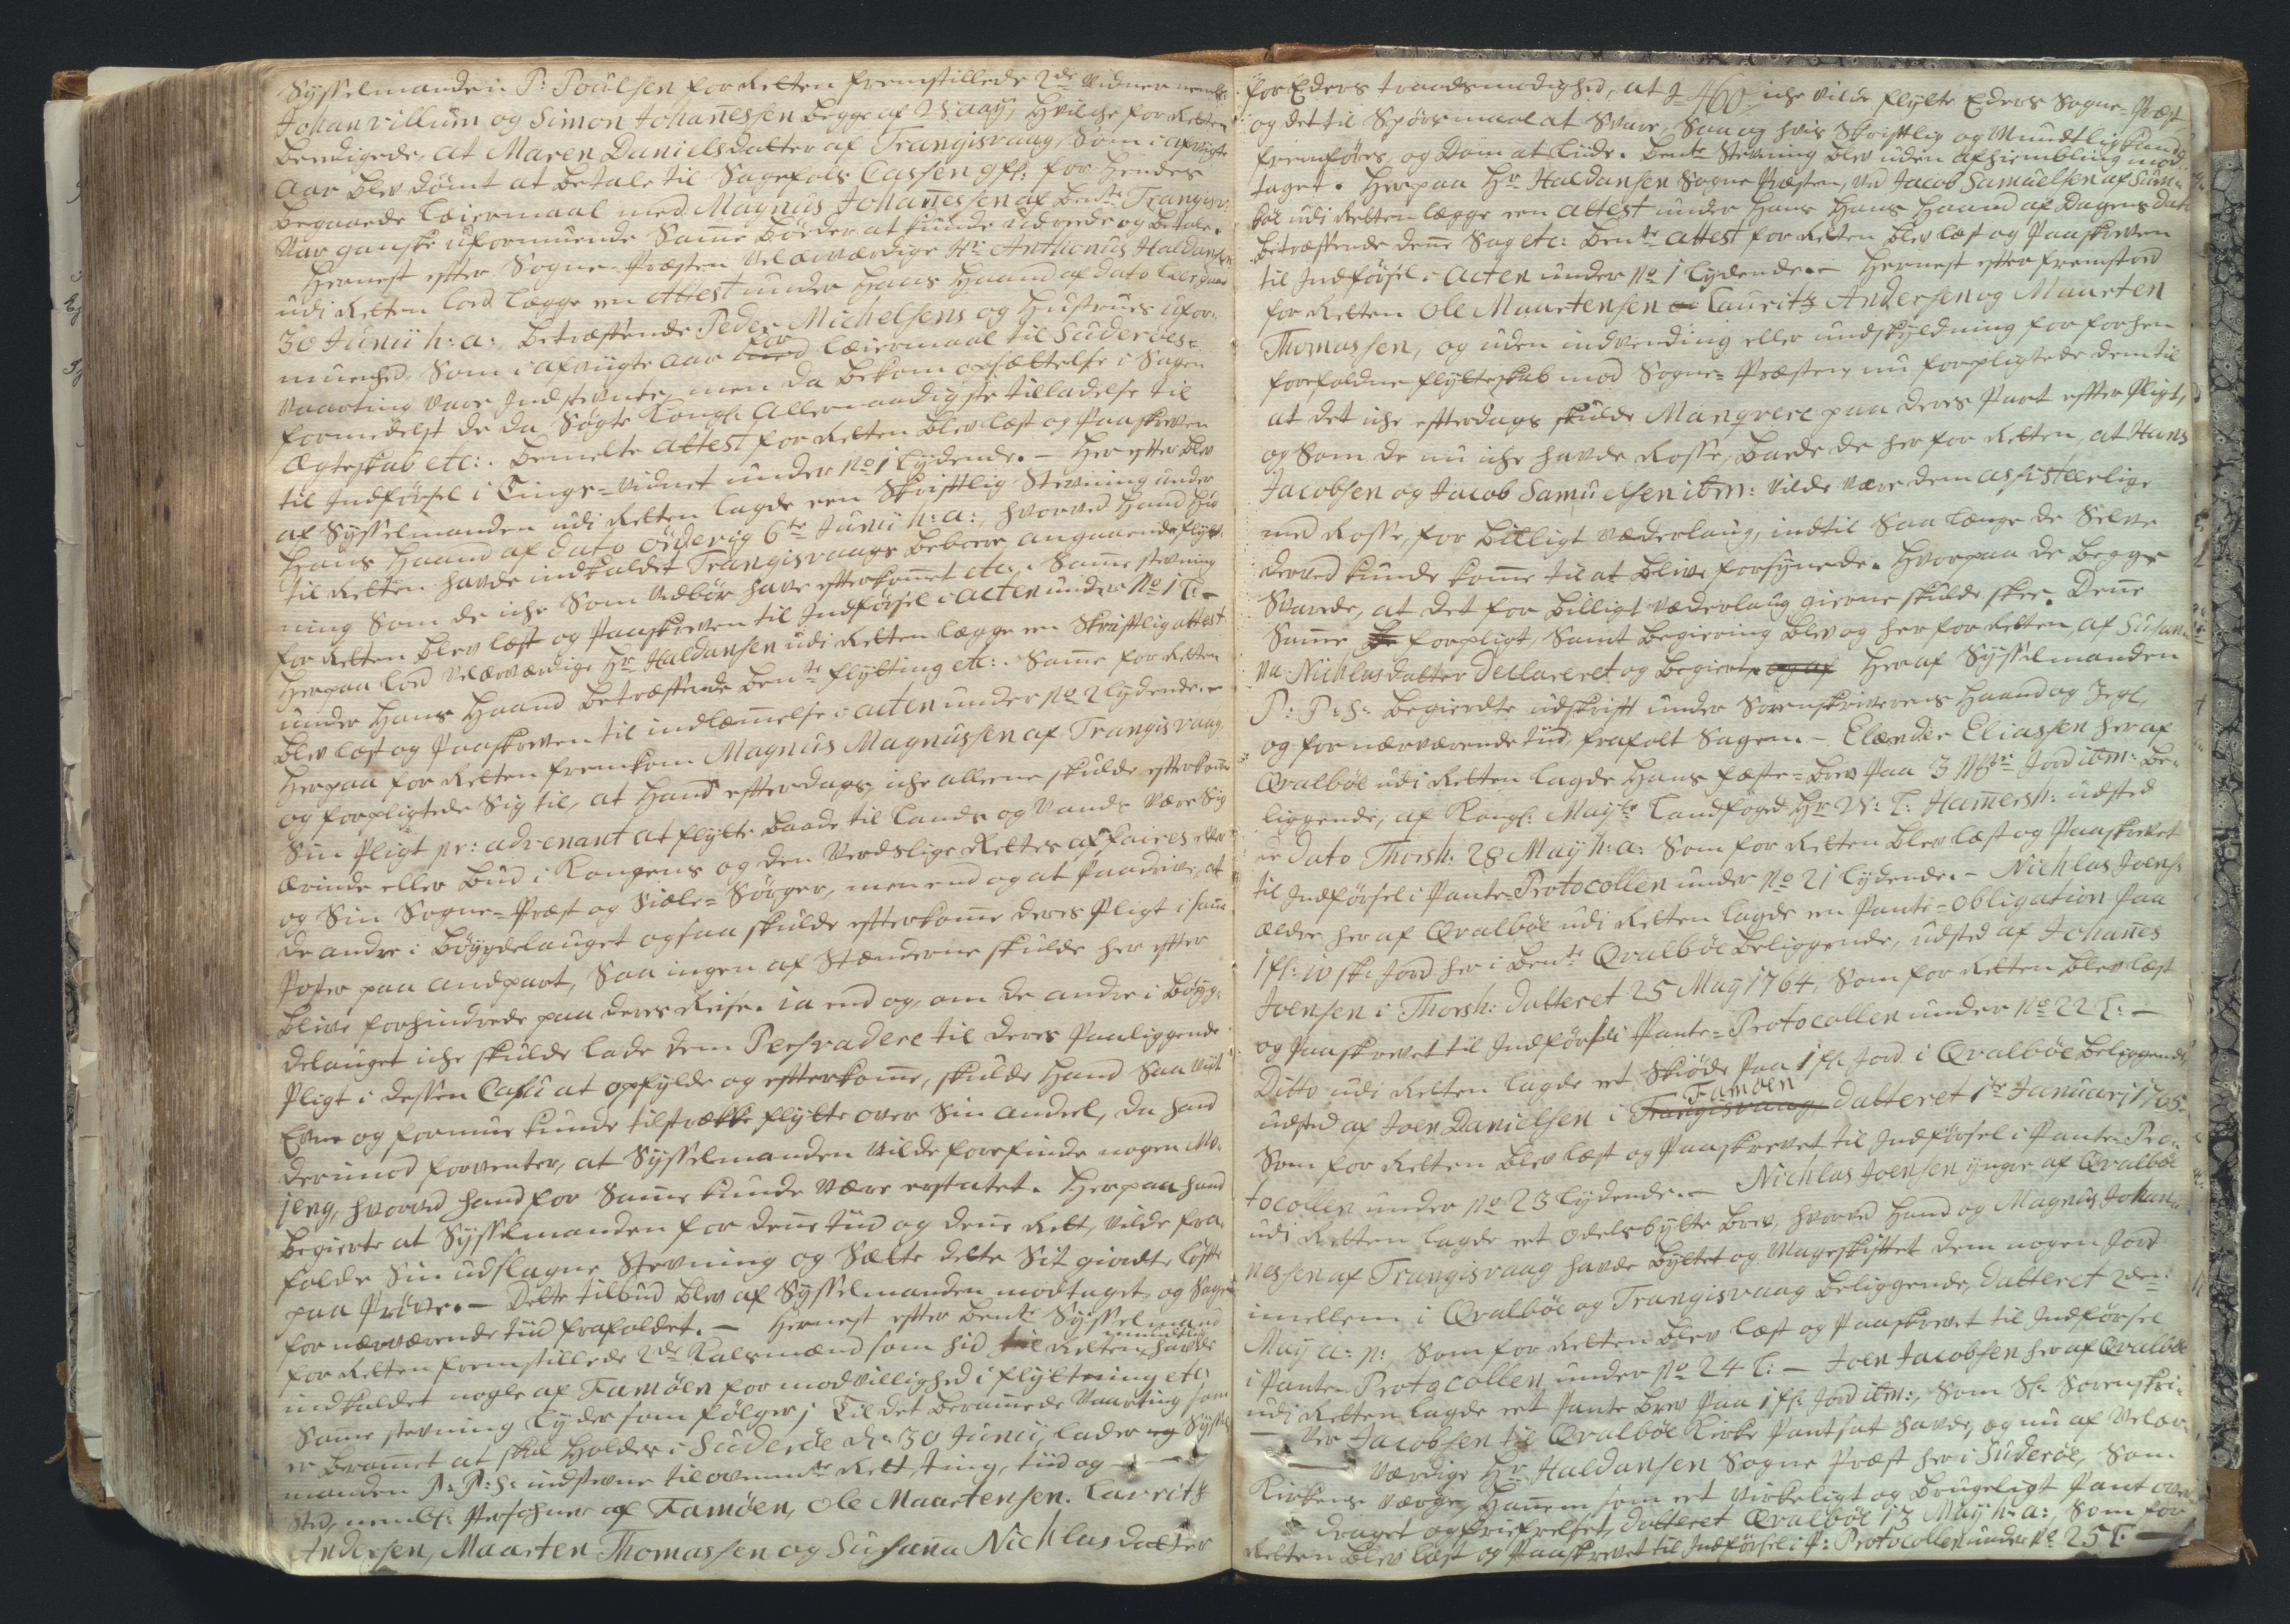 Sysselmanden P: Poulsen for Retten fremstillede 2de Vidner nemlig:
Johanvillum og Simon Johannessen begge af Waaij, hvilche for Retten
beedigede, at Maren Danielsdatter af Trangisvaag, som i afvigte
aar blev dømt at betale til Sagefals Cassen for hendes
begaaede leiermaal med Magnus Johannessen af bemte Trangisv:
var ganske uformuende samme bøder at kunde udrede og betale.
Hernest efter Sogne-Præsten velærværdige Hr Anthonius Haldansen
udi Retten lod lægge en Attest under hans Haand af dato
30 Junii h: a:, betræffende Peder Michelsens og Hustrues ufor-
muenhed, som i afvigte aar for leiermaal til Suderøes
Vaarting vare indstevnte, men da bekom opsættelse i Sagen
formedelst de da søgte Kongl: Allernaadigste tilladelse til
Ægteskab etc:. bemelte Attest for Retten blev læst og Paaskreven
til Indførsel i Tings-Vidnet under No 1 lydende. - Her efter blev
af Sysselmanden udi Retten lagde een Skriftlig Stevning under
hans Haand af dato Øderig 6te Junii h: a:, hvorved Hand hid
til Retten havde indkaldet Trangisvaags beboere angaaende flyt-
ning som de iche som vedbør have efterkommet etc. Samme stevning
for Retten blev læst og Paaskreven til Indførsel i Acten under No 1 l: -
Herpaa lod Velærværdige Hr Haldansen udi Retten lægge en Skriftlig attest
under Hans Haand betræffende bemte flytting etc:. Samme for Retten
blev læst og Paaskreven til indlemmelse i acten under No 2 lydende. -
Herpaa for Retten fremkom Magnus Magnussen af Trangisvaag,
og forpligtede sig til, at Hand efterdags iche alleene skulde efterkomme
Sin Pligt pr: advenant at flytte baade til Lands og Vands være sig
Ærinde eller bud i Kongens og den Verdslige Rettes affaires eller
og Sin Sogne-Præst og Siæle-Sørger, men end og at Paadrive, at
de andre i bøygdelauget ogsaa skulde efterkomme deres Pligt i samme
Poster paa andpart, saa ingen af Stænderne skulde her efter
blive forhindrede paa deres Reise. ia end og, om de andre i bøyg-
delauget iche skulde lade dem Persvadere til deres Paaliggende
Pligt i dessen Casu at opfylde og efterkomme, skulde Hand saa vit
Evne og formue kunde tilstrække flytte over Sin andeel, da hand
derimod forventer, at Sysselmanden vilde forefinde nogen Mo-
yeng, hvorved hand for Samme kunde være erstatet. Herpaa hand
begierte at Sysselmanden for denne tiid og denne Rett, vilde fra-
falde Sin udslagne Stevning og sætte dette Sit giordte løfte
paa Prøve. - Dette tilbud blev af Sysselmanden modtaget og Sagen
for nærværende tiid frafaldet. - Hernest efter bemte Sysselmand
for Retten fremstillede 2de Kalsmænd som hid til Retten mundtlig havde
indkaldet nogle af Famøen for modvillighed i flytning etc:
Samme stevning lyder som følger; Til det berammede Vaarting som
er berammet at skal holdes i Suderøe d: 30 Junii, lader ieg Syssel-
manden P: P: S: indstevne til ovenmte Rett, ting, tiid og
sted, neml: Persohner af Famøen, Ole Maartensen. Lauritz
Andersen, Maarten Thomassen og Susanna Nichlasdatter
for Eders traadsmodighed, at I iche vilde flytte Eders Sogne-Præst
og det til Spørsmaal at svare, saa og hvis Skriftlig og Mundtlig kand
fremføres, og Dom at liide. bemte Stevning blev uden afsiembling mod-
taget. Herpaa Hr Haldansen Sogne Præsten, ved Jacob Samuelsen af Sum-
bøe udi Retten lægge een attest under Hans Haand af Dagens dato
betræffende denne Sag etc: bemte attest for Retten blev læst og Paaskreven
til Indførsel i Acten under No 1 lydende. - Hernest efter fremstod
for Retten Ole Maartensen Lauritz Andersen og Maarten
Thomassen, og uden indvending eller undskyldning for forhen
forefaldne flytteskab mod Sogne-Præsten, nu forpligtede dem til
at det iche efterdags skulde Manqvere paa deres Part efter Pligt,
og som de nu iche havde Rosse, baede de her for Retten, at Hans
Jacobsen og Jacob Samuelsen ibm: vilde være dem assisteerlige
med Rosse, for billigt vederlaug, indtil saa længe de selve
derved kunde komme til at blive forsynede. Hvorpaa de begge
Svarede, at det for billigt vederlaug gierne skulde skee. Denne
Samme forpligt, samt begiering blev og her for Retten af Susan-
na Nichlasdatter Declareret og begiert og af Her af Sysselmanden
P: P: S: begierdte udskrift under Sorenskriverens Haand og Segl,
og for nærværende tiid, frafalt Sagen. - Elænder Eliassen her af
Qvalbøe udi Retten lagde Hans fæste-brev Paa 3 Mkr Jord ibm: be-
liggende, af Kongl: Mayts Landfoged Hr W: L: Hammersh: udsted
de Dato Thorsh: 28 May h: a: som for Retten blev læst og Paaskrevet
til Indførsel i Pante-Protocollen under No 21 lydende. - Nichlas Joens:
ældre, her af Qvalbøe udi Retten lagde en Pante-Obligation Paa
1 fl: 10 sk: Jord her i bemte Qvalbøe beliggende, udsted af Johannes
Joensen i Thorsh: datteret 25 May 1764, som for Retten blev læst
og Paaskrevet til Indførsel i Pante-Protocollen under No 22 l: -
Ditto udi Retten lagde et Skiøde Paa 1 fl: Jord i Qvalbøe beliggende,
udsted af Joen Danielsen i Trangisvaag Famøen datteret 1te Januarj 1765.
Som for Retten blev læst og Paaskrevet til Indførsel i Pante-Pro-
tocollen under No 23 lydende. - Nichlas Joensen yngre af Qvalbøe
udi Retten lagde et Odelsbytte brev, hvorved Hand og Magnus Johan-
nessen af Trangisvaag havde byttet og Mageskiftet dem nogen Jord
imellem i Qvalbøe og Trangisvaag beliggende, datteret 2den
May a: p: som for Retten blev læst og Paaskrevet til Indførsel
i Pante-Protocollen under No 24 l: - Joen Jacobsen her af Qvalbøe
udi Retten lagde et Pante brev Paa 1 fl: Jord ibm:, Som Sl: Sorenskri-
ver Jacobsen til Qvalbøe Kirke Pantsat havde, og nu af Velær-
værdige Hr Haldansen Sogne Præst her i Suderøe, som
Kirkens Værge, Hannem som et virkeligt og brugeligt Pant over-
draget og friefrelset, datteret Qvalbøe 13 May h: a:, som for
Retten blev læst og Paaskrevet til Indførsel i P: Protocollen under No 25 l: -